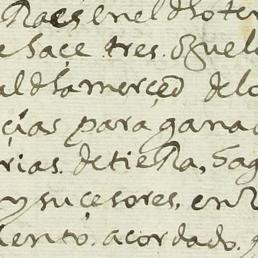 es en el d̃ho ter
e haçe tres. Ozuelo
al d̃ha merçed de lo
çias para ganad
rias. de tierra, Sag
y suçesores, en
iento. acordado.